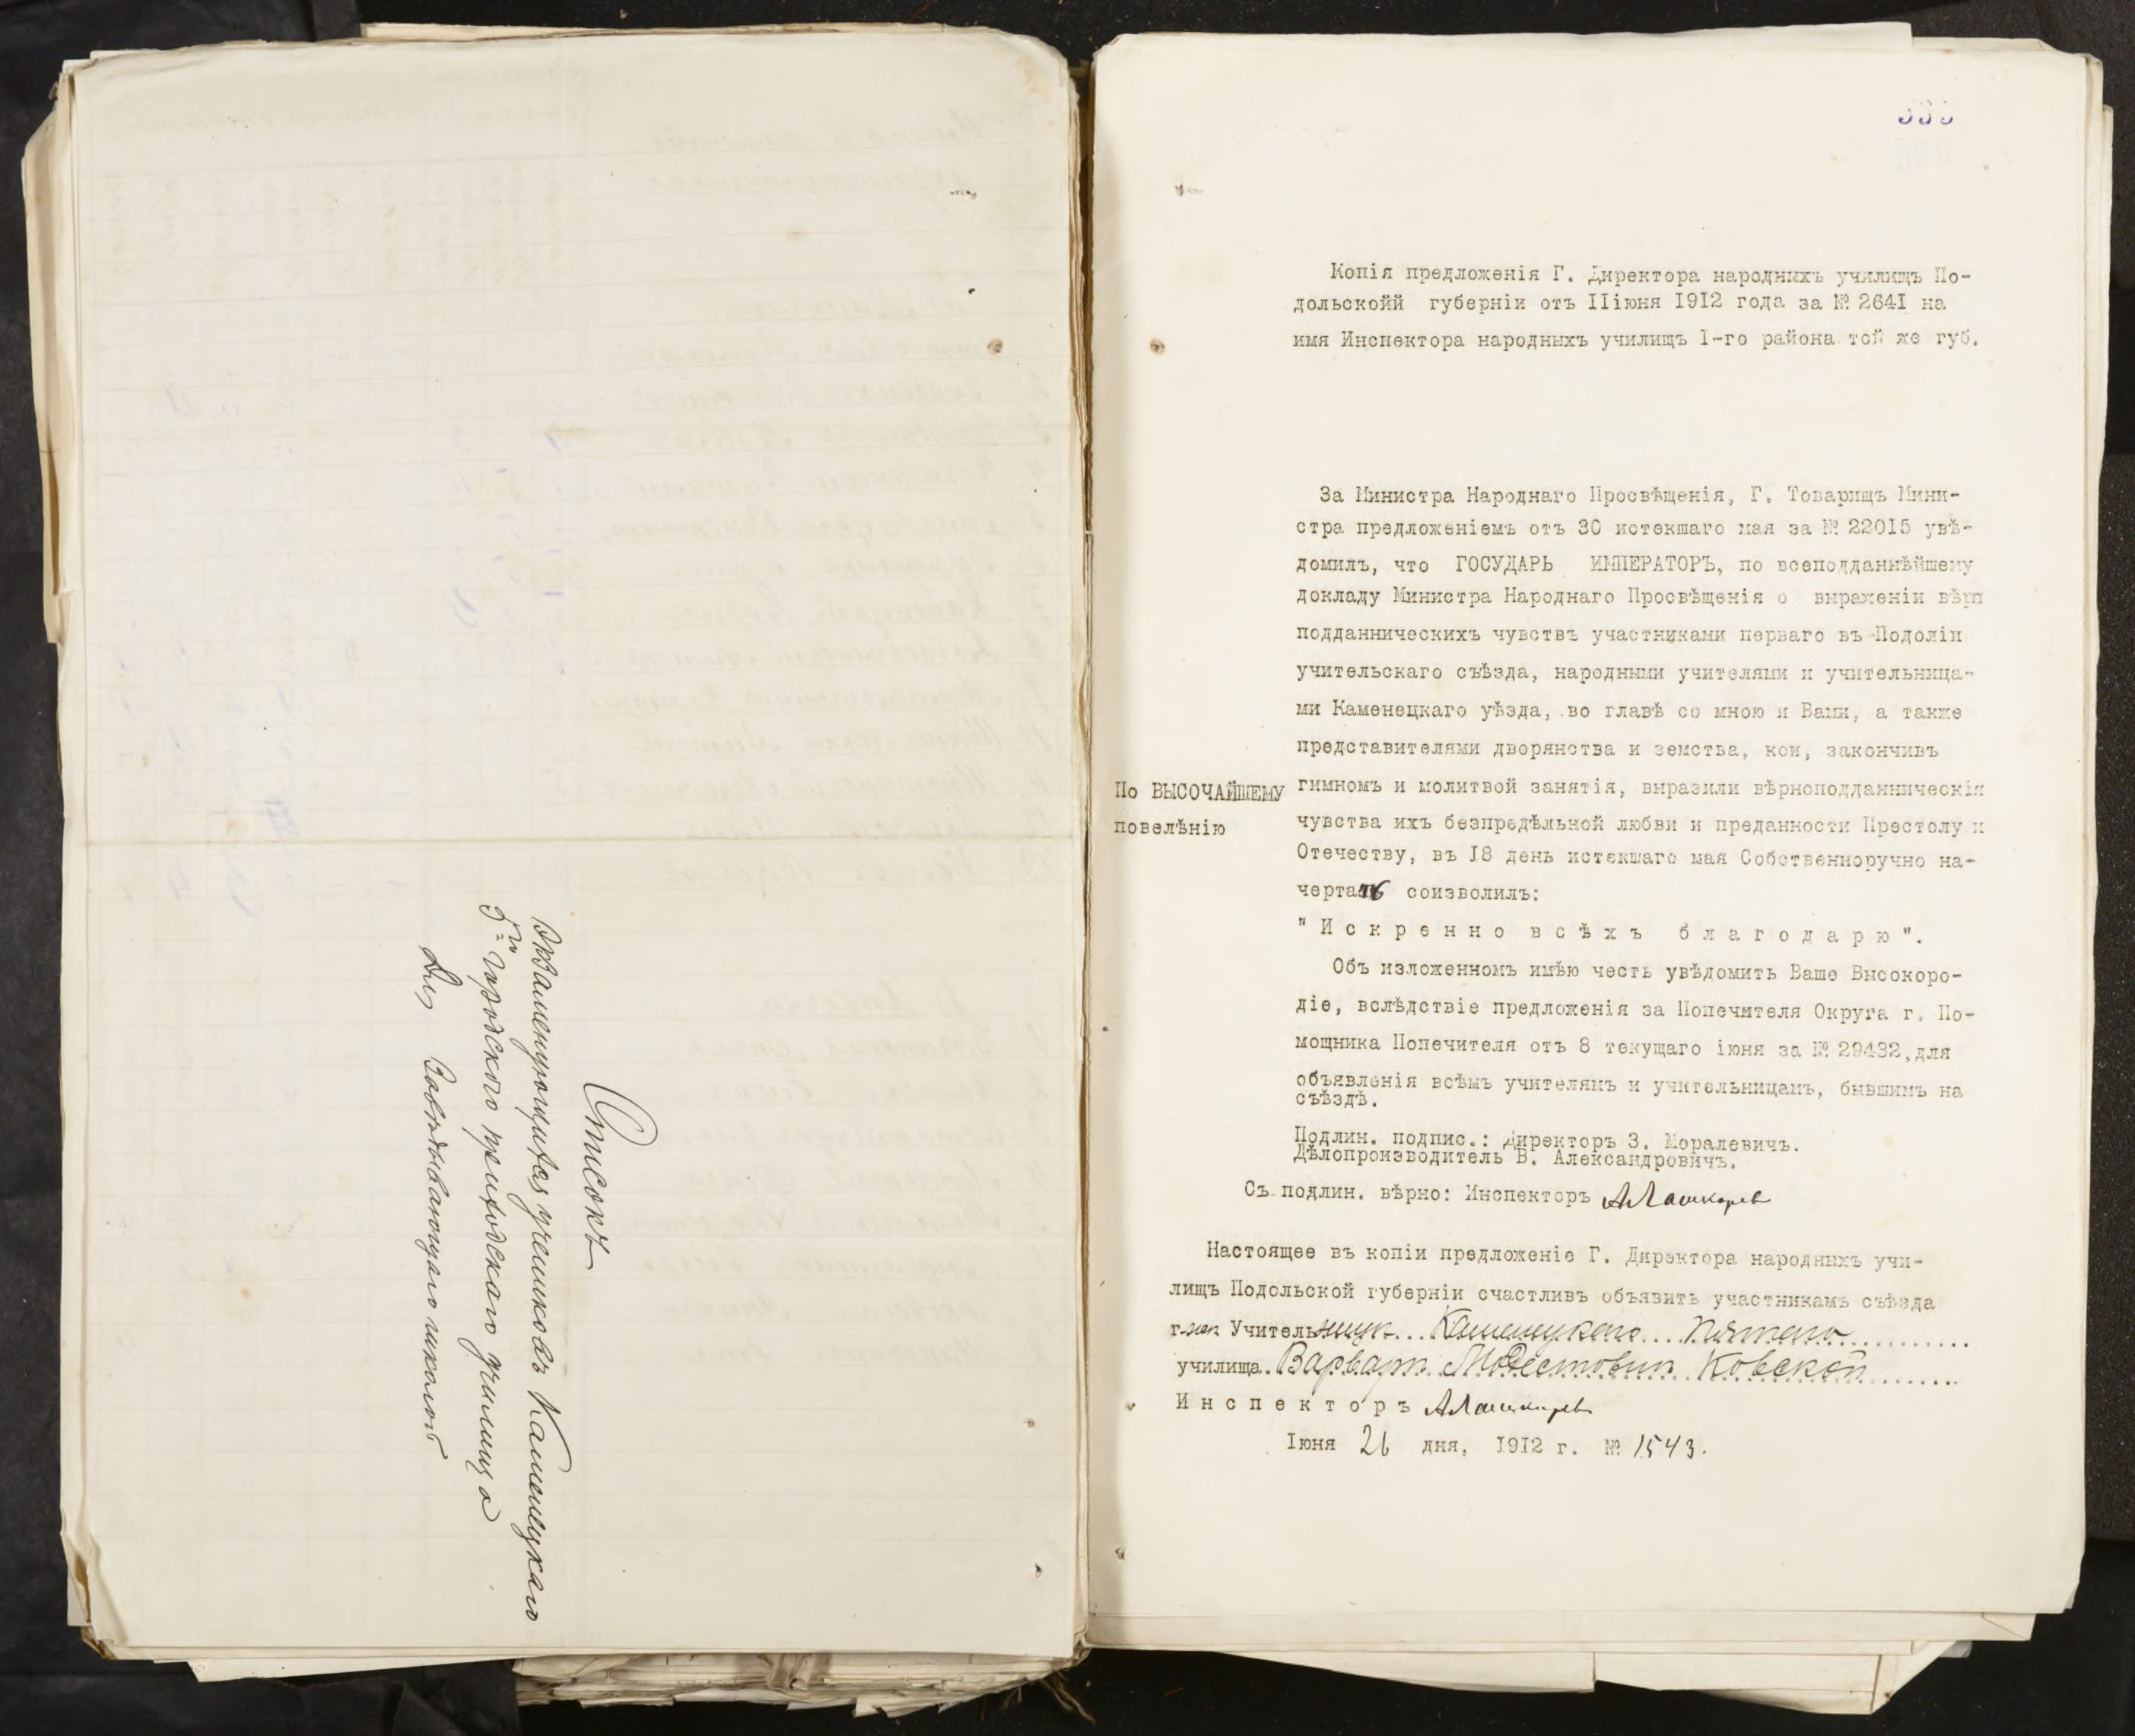 Списокъ
Экзаменующихся учениковъ Каменецкаго
5го городского приходскаго училища
Завѣдывающаго школой
Копія предложенія Г. Директора народныхъ училищъ По-
дольскойй губерніи отъ IIіюня I9I2 года за № 264I на
имя Инспектора народныхъ училищъ I-го района той же губ.
За Министра Народнаго Просвѣщенія, Г. Товарищъ Мини-
стра предложеніемъ отъ 30 истекшаго мая за № 220I5 увѣ-
домилъ, что ГОСУДАРЬ ИМПЕРАТОРЪ, по всеподданнѣйшему
докладу Министра Народнаго Просвѣщенія о выраженіи вѣрн
подданническихъ чувствъ участниками перваго въ Подоліи
учительскаго съѣзда, народными учителями и учительница-
ми Каменецкаго уѣзда, во главѣ со мною и Вами, а также
представителями дворянства и земства, кои, закончивъ
По ВЫСОЧАЙШЕМУ
повелѣнію
гимномъ и молитвой занятія, выразили вѣрноподданническія
чувства ихъ безпредѣльной любви и преданности Престолу и
Отечеству, въ I8 день истекшаго мая Собственноручно на-
чертать соизволилъ:
"Искренно всѣхъ благодарю".
Объ изложенномъ имѣю честь увѣдомить Ваше Высокоро-
діе, вслѣдствіе предложенія за Попечителя Округа г. По-
мощника Попечителя отъ 8 текущаго іюня за № 29432,для
объявленія всѣмъ учителямъ и учительницамъ, бывшимъ на
съѣздѣ.
Подлин. подпис.: Директоръ З. Моралевичъ.
Дѣлопроизводитель В. Александровичъ.
Съ подлин. вѣрно: Инспекторъ АЛашкарев
Настоящее въ копіи предложеніе Г. Директора народныхъ учи-
лищъ Подольской губерніи счастливъ объявить участникамъ съѣзда
Учительницѣ... Каменецкаго... пятаго
училища. Варварѣ Модестовнѣ Ковской
Инспекторъ АЛашкарев
Іюня 26 дня, I9I2 г. № 1543.